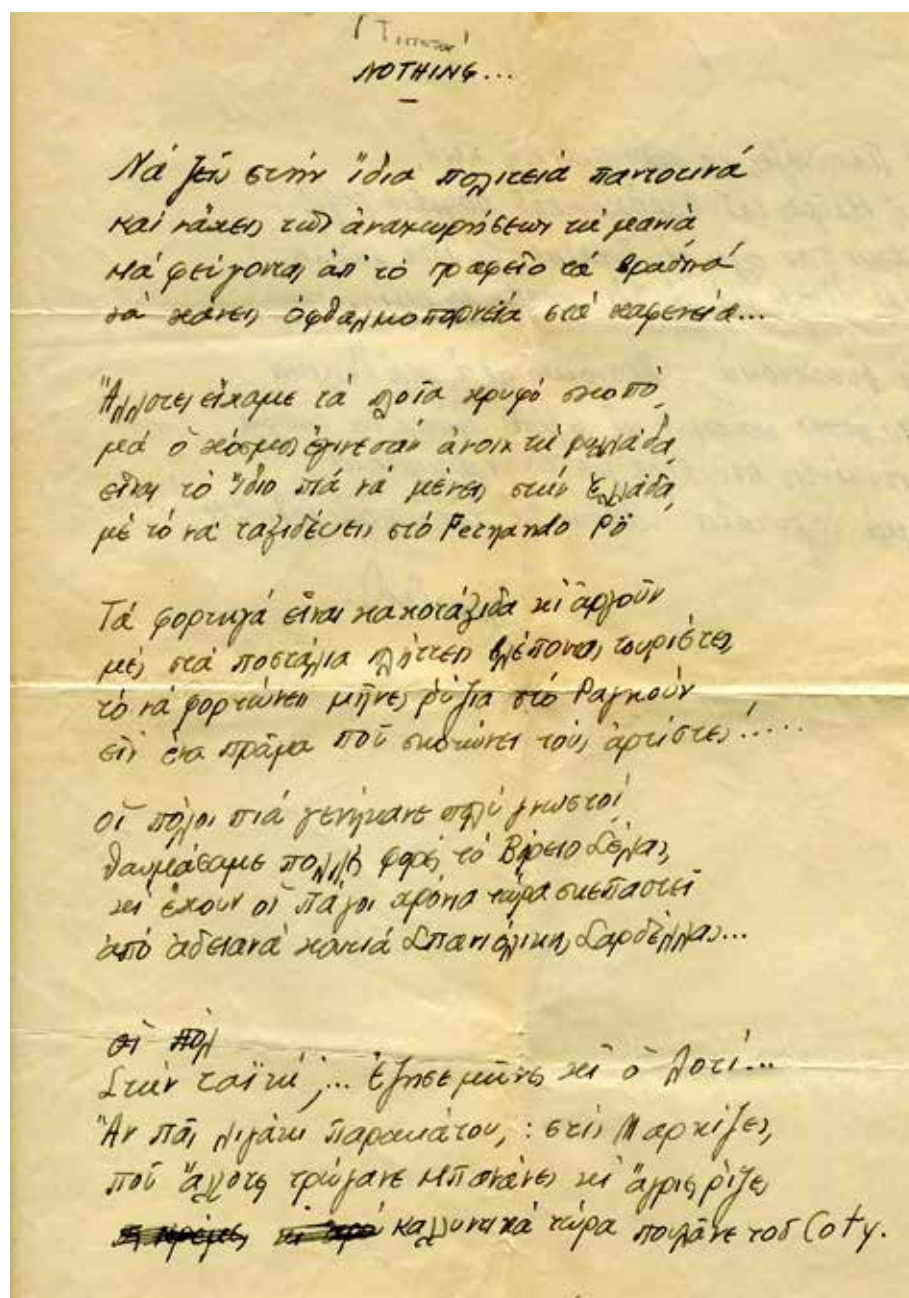 (Τίποτα)
NOTHING...
Νά ζεῖς στήν ἴδια πολιτεία παντοτινά
καί νἄχεις τῶν ἀναχωρήσεων τή μανιά
μά φεύγοντας ἀπ' τό γραφεῖο τά βραδινά
νά κάνεις ὀφθαλμοπορνεία στά καφενεῖα...
Ἄλλοτες εἴχαμε τά πλοῖα κρυφό σκοπό,
μά ὁ κόσμος ἔγινε σάν ἀνοιχτή φυλλάδα,
εἶναι τό ἴδιο πιά νά μένεις στήν Ἑλλάδα,
μέ τό νά ταξιδεύεις στό Fernando Pö
Τά φορτηγά εἶναι κακοτάξιδα κι ἀργοῦν
μές στά ποστάλια πλήττεις βλέποντας τουρίστες,
τό νά φορτώνεις μῆνες ρύζια στό Ραγκούν
εἶν ἕνα πρᾶμα πού σκοτώνει τούς ἀρτίστες!.....
οἱ πόλοι πιά γενήκανε πολύ γνωστοί
θαυμάσαμε πολλές φορές τό Βόρειο Σέλας,
κι ἔχουν οἱ πάγοι χρόνια τώρα σκεπαστεῖ
ἀπό ἀδειανά κουτιά Σπανιόλικης Σαρδέλλας...
οἱ πόλ
Στήν ταϊτή;... ἔζησε μῆνες κι ὁ Λοτί...
Ἄν πᾶς λιγάκι παρακάτου, : στίς Μαρκίζες,
πού ἄλλοτες τρώγανε μπανάνες κι ἄγριες ρίζες
καλλυντικά τώρα πουλᾶνε τοῦ Coty.